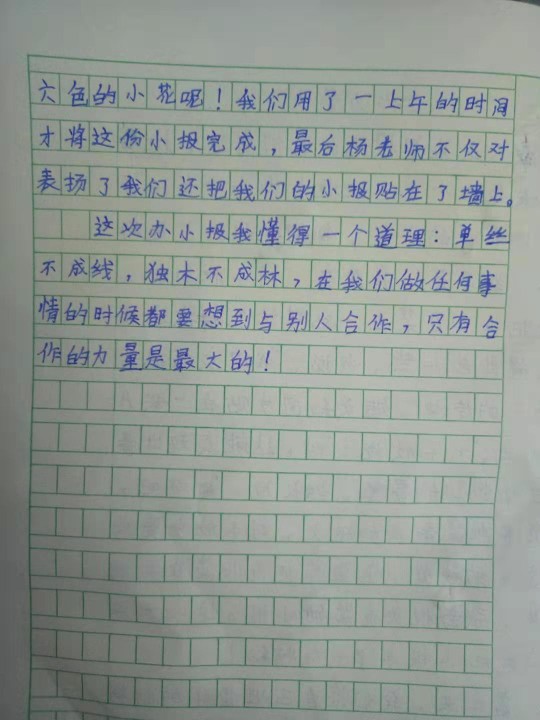 六色的小花呢！我们用了一上午的时间
才将这份小报完成，最后杨老师不仅对
表扬了我们还把我们的小报贴在了墙上。
这次办小报我懂得一个道理：单丝
不成线，独木不成林，在我们做任何事
情的时候都要想到与别人合作，只有合
作的力量是最大的！